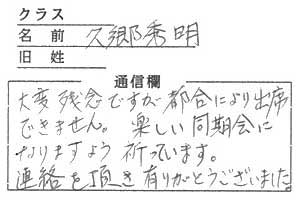 クラス
名前 久郷秀明
旧姓
通信欄
大変残念ですが都合により出席
できません。 楽しい同期会に
なりますよう祈っています。
連絡を頂き有りがとうございました